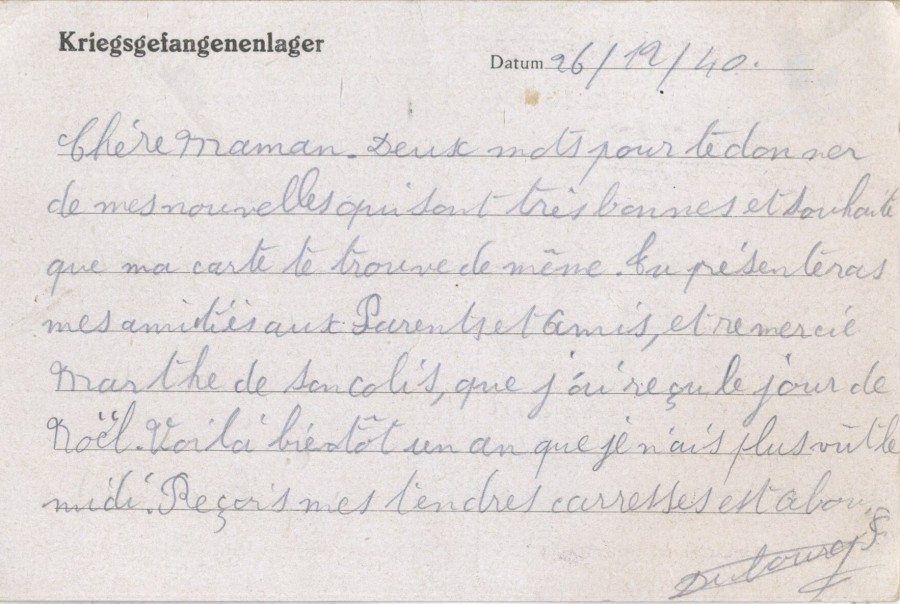 Kriegsgefangenenlager
Datum 26/12/40.
Chére Maman. Deux mots pour te donner
de mes nouvelles qui sont très bonnes et souhaite
que ma carte te trouve de même. Tu présenteras
mes amitiés aux Parents et Amis, et remercie
Marthe de son colis, que j'ai reçu le jour de
Noël. Voilà bientôt un an que je n'ais plus vût le
midi. Reçois mes tendres carresses est a bon,
Dubourg F